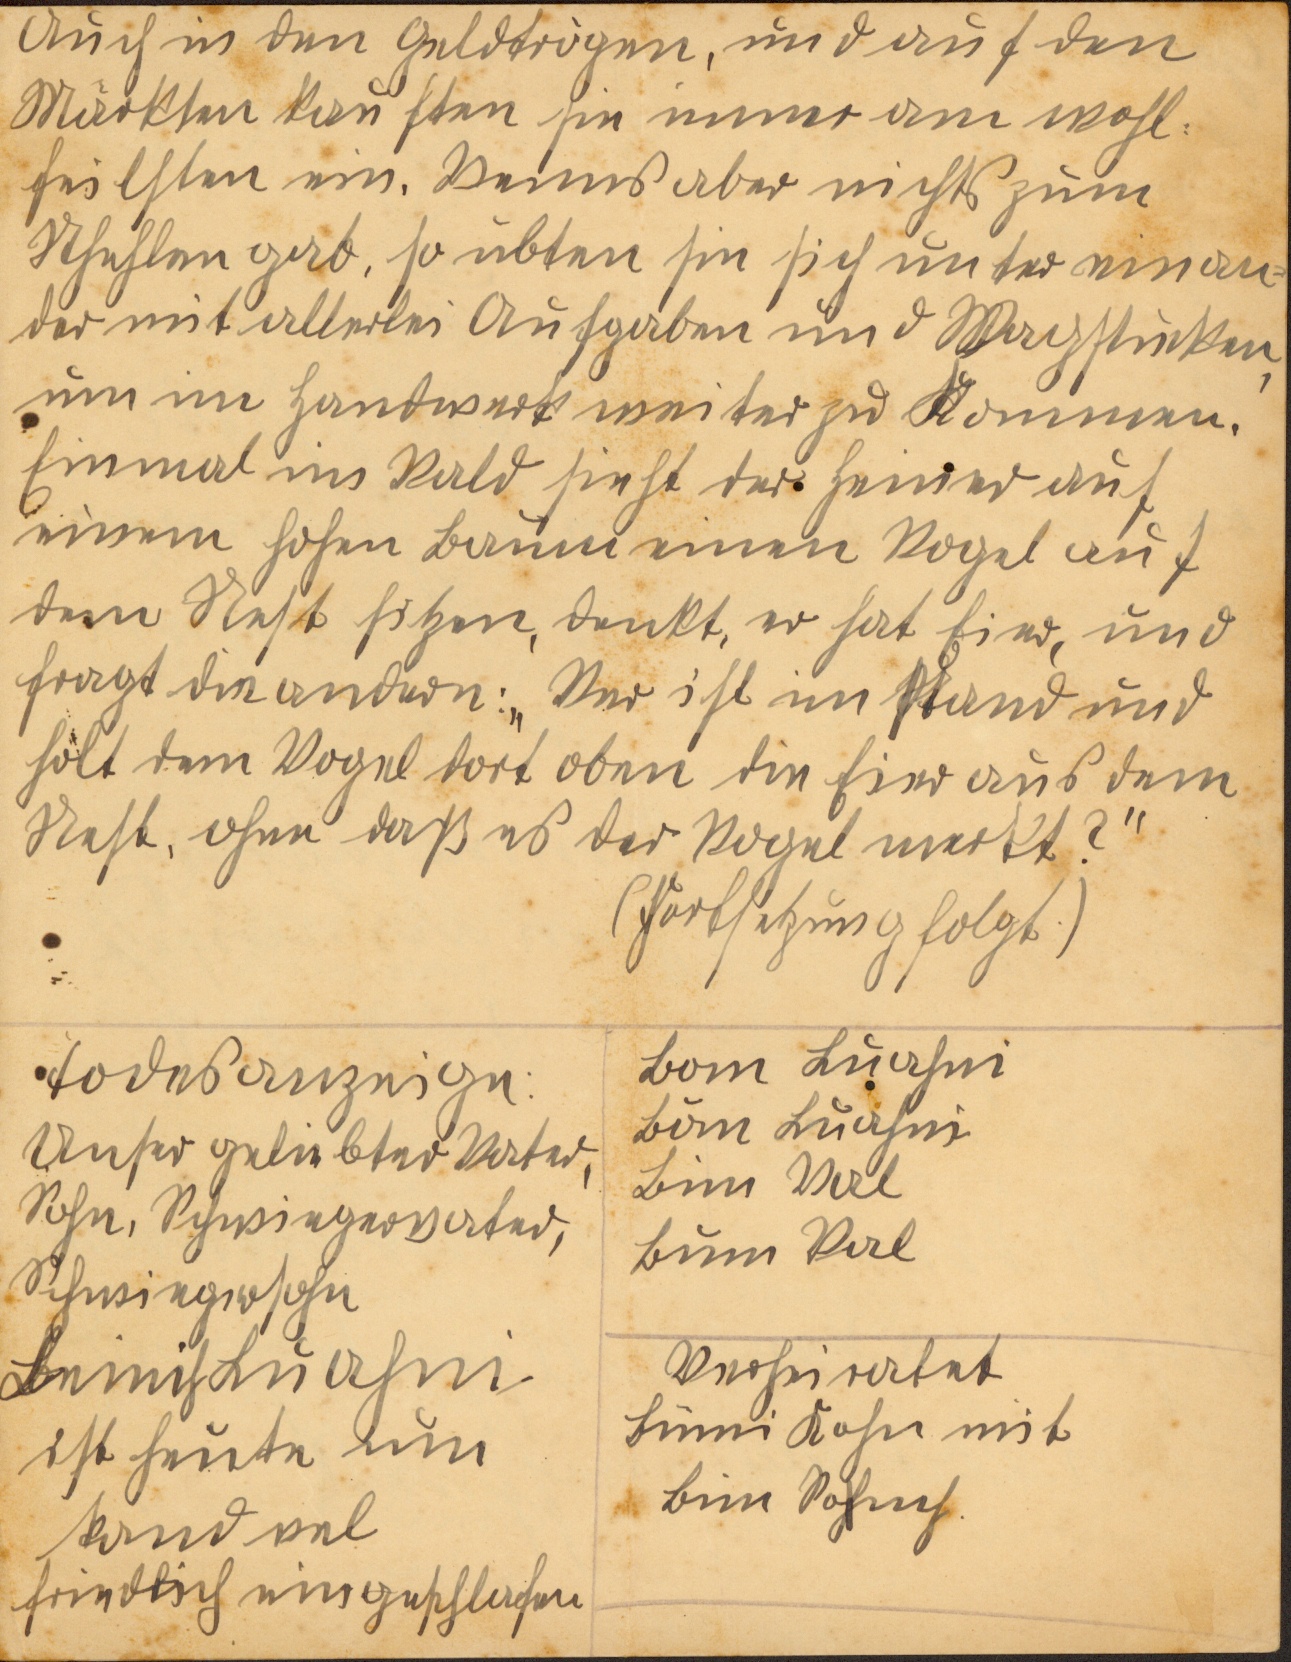 Auch in den Geldtrögen, und auf den
Märkten kauften sie immer am wohl-
feilsten ein. Wenns aber nichts zum
Sthehlen gab, so übten sie sich unter einan-
der mit allerlei Aufgaben und Wagstücken,
um im Handwerk weiter zu kommen.
Einmal im Wald sieht der Heiner auf
einem hohen Baum einen Vogel auf
dem Nest sitzen, denkt, er hat Eier, und
fragt die andern: „Wer ist im stand und
holt dem Vogel dort oben die Eier aus dem
Nest, ohne daß es der Vogel merkt?"
(Fortsetzung folgt.)
Todesanzeige:
Unser geliebter Vater,
Sohn, Schwiegervater,
Schwiegersohn
Luahni
ist heute um
friedlich eingeschlafen
Bom Luahni
Böm Luahni
Bim Wal
Bum Wal
Verheiratet
Bimmi Kohn mit
Bim